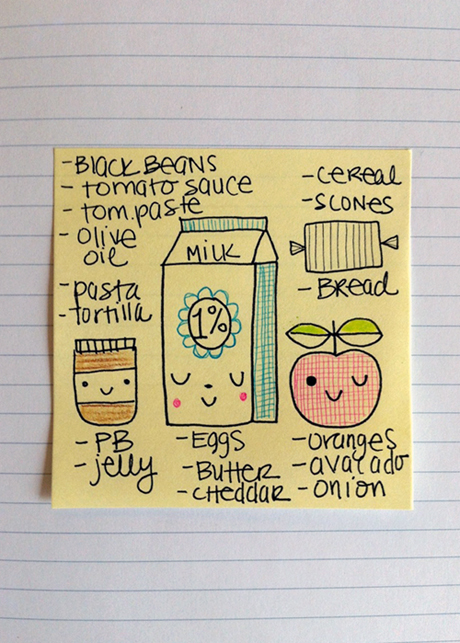 - BLACK BEANS
- tomato sauce
- tom. paste
- olive
oil
- pasta
- tortilla
MiLK
1%
- CeReaL
- SCONES
- BReaD
- PB
- jelly
- EGGS
- BUTTeR
- CHeDDaR
- oranges
- avacado
- onion